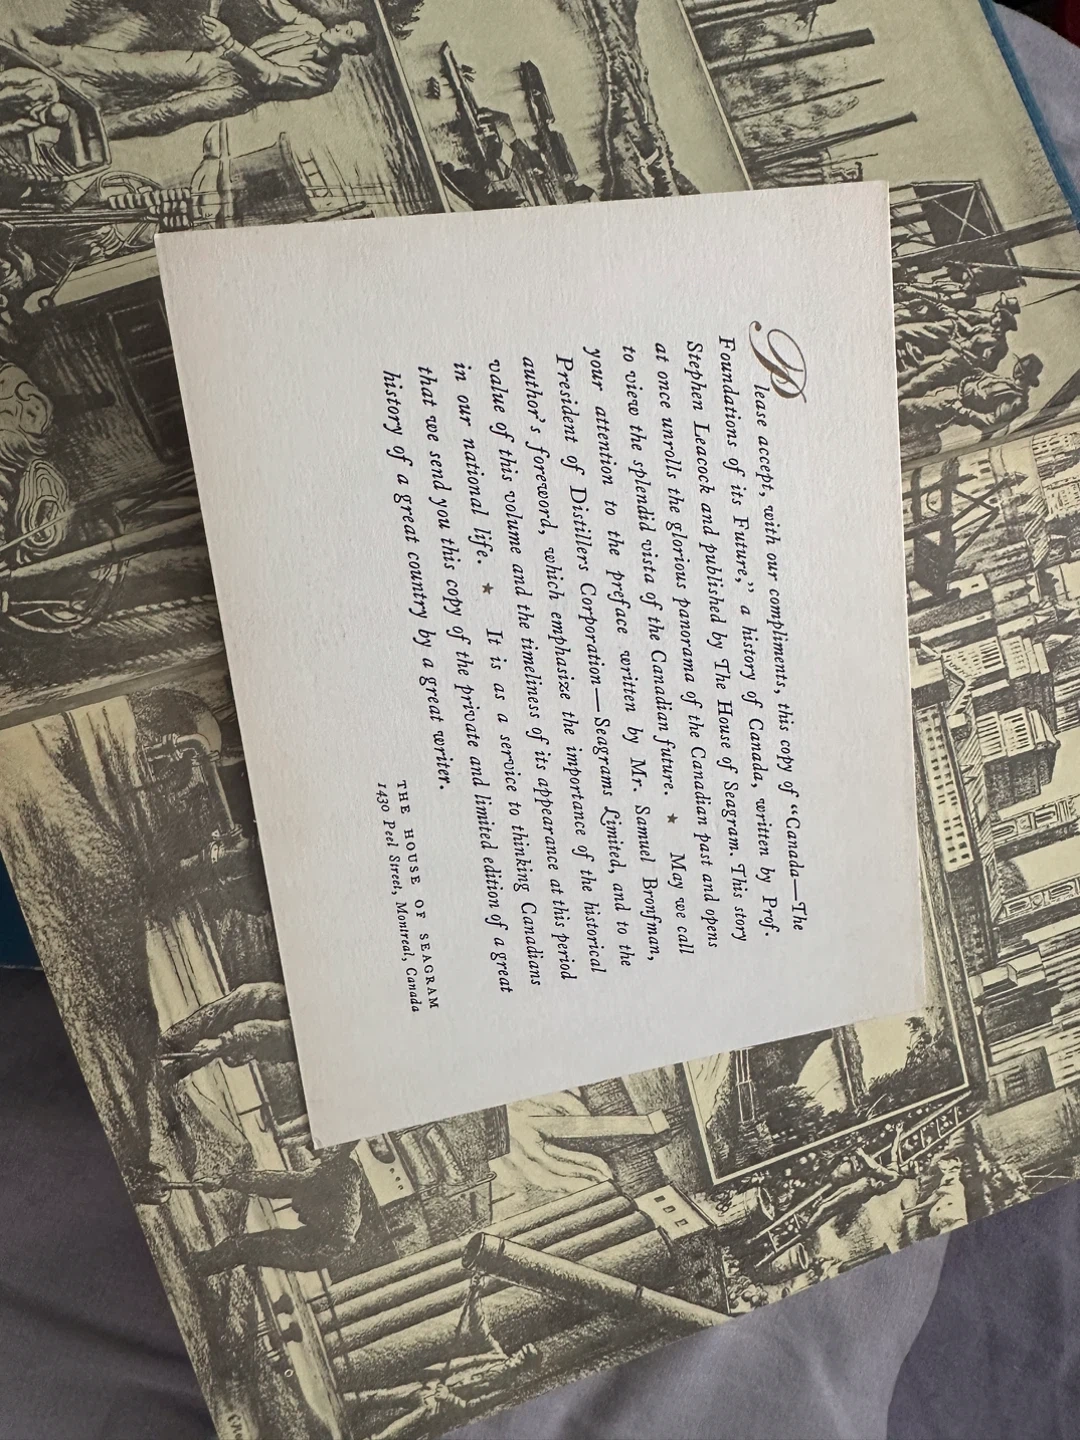 Please accept, with our compliments, this copy of “Canada—The
Foundations of its Future,” a history of Canada, written by Prof.
Stephen Leacock and published by The House of Seagram. This story
at once unrolls the glorious panorama of the Canadian past and opens
to view the splendid vista of the Canadian future. ★ May we call
your attention to the preface written by Mr. Samuel Bronfman,
President of Distillers Corporation—Seagrams Limited, and to the
author’s foreword, which emphasize the importance of the historical
value of this volume and the timeliness of its appearance at this period
in our national life. ★ It is as a service to thinking Canadians
that we send you this copy of the private and limited edition of a great
history of a great country by a great writer.
THE HOUSE OF SEAGRAM
1430 Peel Street, Montreal, Canada